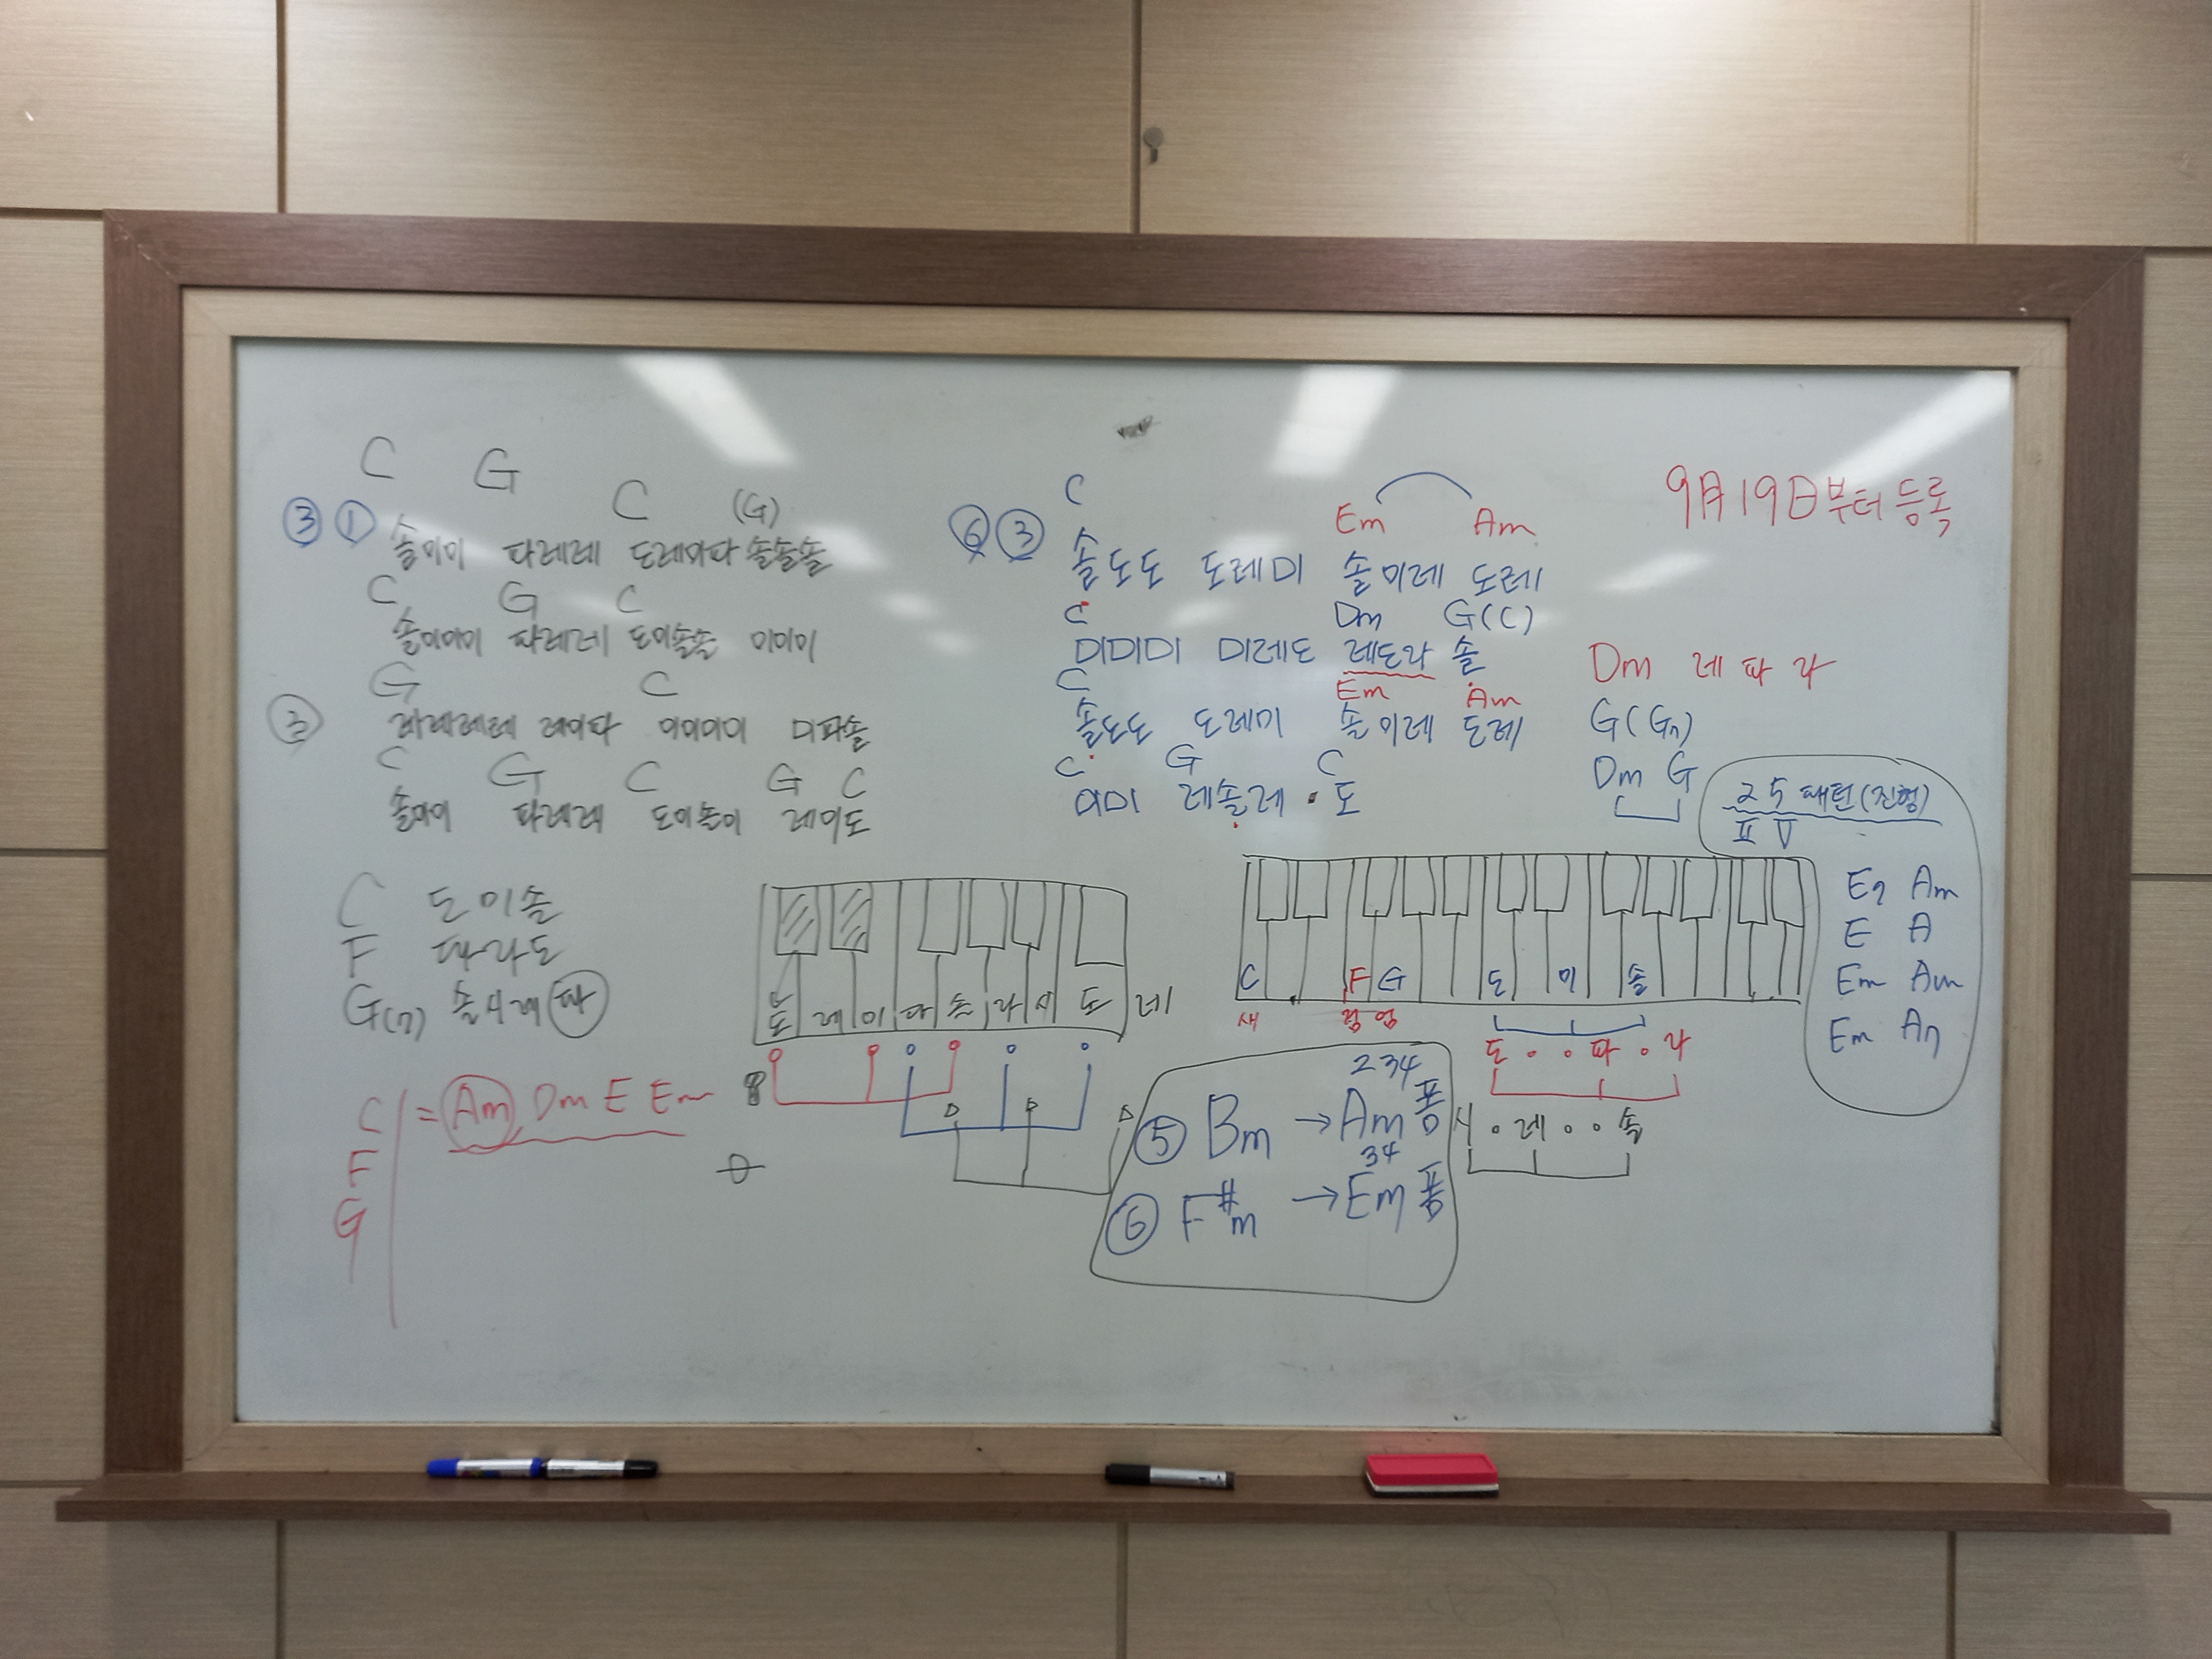 C G C (G)
③ ① 솔미미 파레레 도레미파 솔솔솔
C G C
솔미미미 파레레 도미솔솔 미미미
G C
② 레레레레 레미파 미미미미 미파솔
C G C G C
솔미미 파레레 도미솔미 레미도
C 도미솔
F 파라도
G(7) 솔시레파
C = Am Dm E Em
F
G
도 레 미 파 솔 라 시 도 레
C
Em Am
⑥ ③ 솔도도 도레미 솔미레 도레
C Dm G(C)
미미미 미레도 레도라 솔
C Em Am
솔도도 도레미 솔미레 도레
C G C
미미 레솔레 · 도
9月19日부터 등록
Dm 레 파 라
G(G7)
Dm G
2 5 패턴(진행)
II V
E7 Am
E A
Em Am
Em A7
C F G 도 미 솔
새
도 · · 파 · 라
시 · 레 · · 솔
2 3 4
⑤ Bm → Am 폼
3 4
⑥ F#m → Em 폼